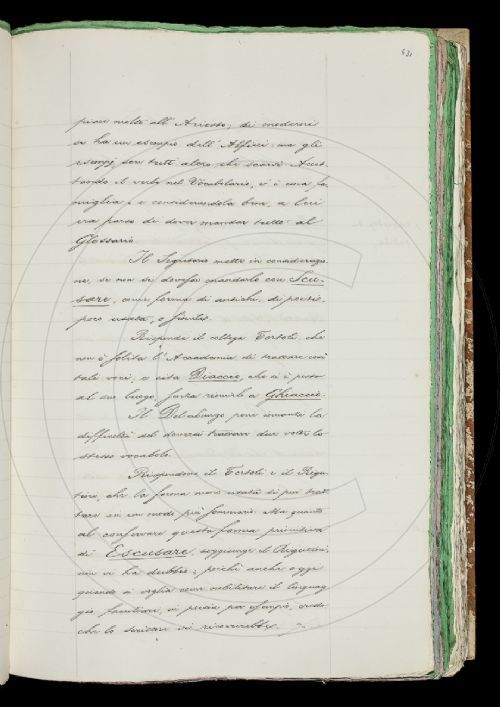 431
piace molto all' Ariosto; di moderni
si ha un esempio dell' Alfieri: ma gli
esempj son tutti altro che scarsi. Accet-
tando il verbo nel Vocabolario, vi è cara fa
miglia; e considerandola bene, a lui
era parso di dover mandar tutto al
Glossario.
Il Segretario mette in considerazio
ne, se non si dovesse mandarlo con Scu-
sare, come forma di antichi, di poetic.
poco usata, o simile.
Risponde il collega Tortoli, che
non è solita l' Accademia di trattare così
tali voci, e cita Diaccio, che si è posto
al suo luogo, senza unirlo a Ghiaccio.
Il Del Lungo pone innanzi la
difficoltà del doversi trattare due volte lo
stesso vocabolo.
Rispondono il Tortoli e il Rigu-
tini, che la forma meno usata si può trat
tare in un modo più sommario. Ma quanto
al conservare questa forma primitiva
di Escusare, soggiunge il Rigutini,
non vi ha dubbio; poichè anche oggi
quando si voglia come nobilitare il linguag
gio familiare, in poesia per esempio, crede
che lo scrittore vi ricorrerebbe.